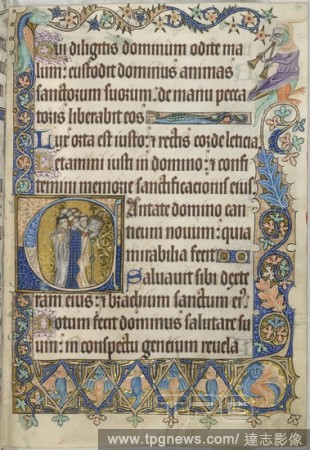 Qui diligitis dominum odite ma
lum: custodit dominus animas
sanctorum suorum: de manu pecca
toris liberabit eos
Lux orta est iusto: et rectis corde leticia
Letamini iusti in domino: et confi
temini memorie sanctificacionis eius
Cantate domino can
ticum nouum: quia
mirabilia fecit
Saluauit sibi dexte
ram eius: et brachium sanctum eius
Notum fecit dominus salutare su
um: in conspectu gencium reuela
TPG
www.tpgnews.com/ 達志影像